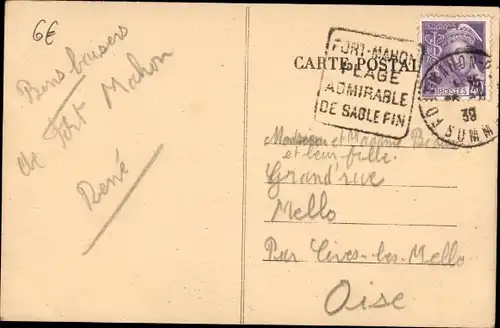 6€
Bons baisers
de Fort Mahon
René
CARTE POSTAL
FORT-MAHON
PLAGE
ADMIRABLE
DE SABLE FIN
POSTES
39
SOMM
Madame et Madame
et leur fille.
Grand'rue
Mello
Par Cires-les-Mello
Oise